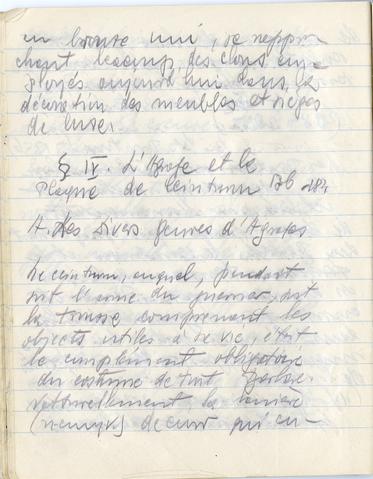 en bronze uni, se rappro
chant beaucoup des clous em
ployés aujourd'hui dans la
décoration des meubles et sièges
de luxe.
§ IV. L'Agrafe et la
Plaque de ceinturon 176 184
A. Les divers genres d'Agrafes
Le ceinturon, auquel, pendant
soit l'arme du guerrier, soit
la trousse comprenant les
objets utiles à sa vie, était
le complément obligatoire
du costume de tout Barbare.
Naturellement la lanière
de cuir qui en-